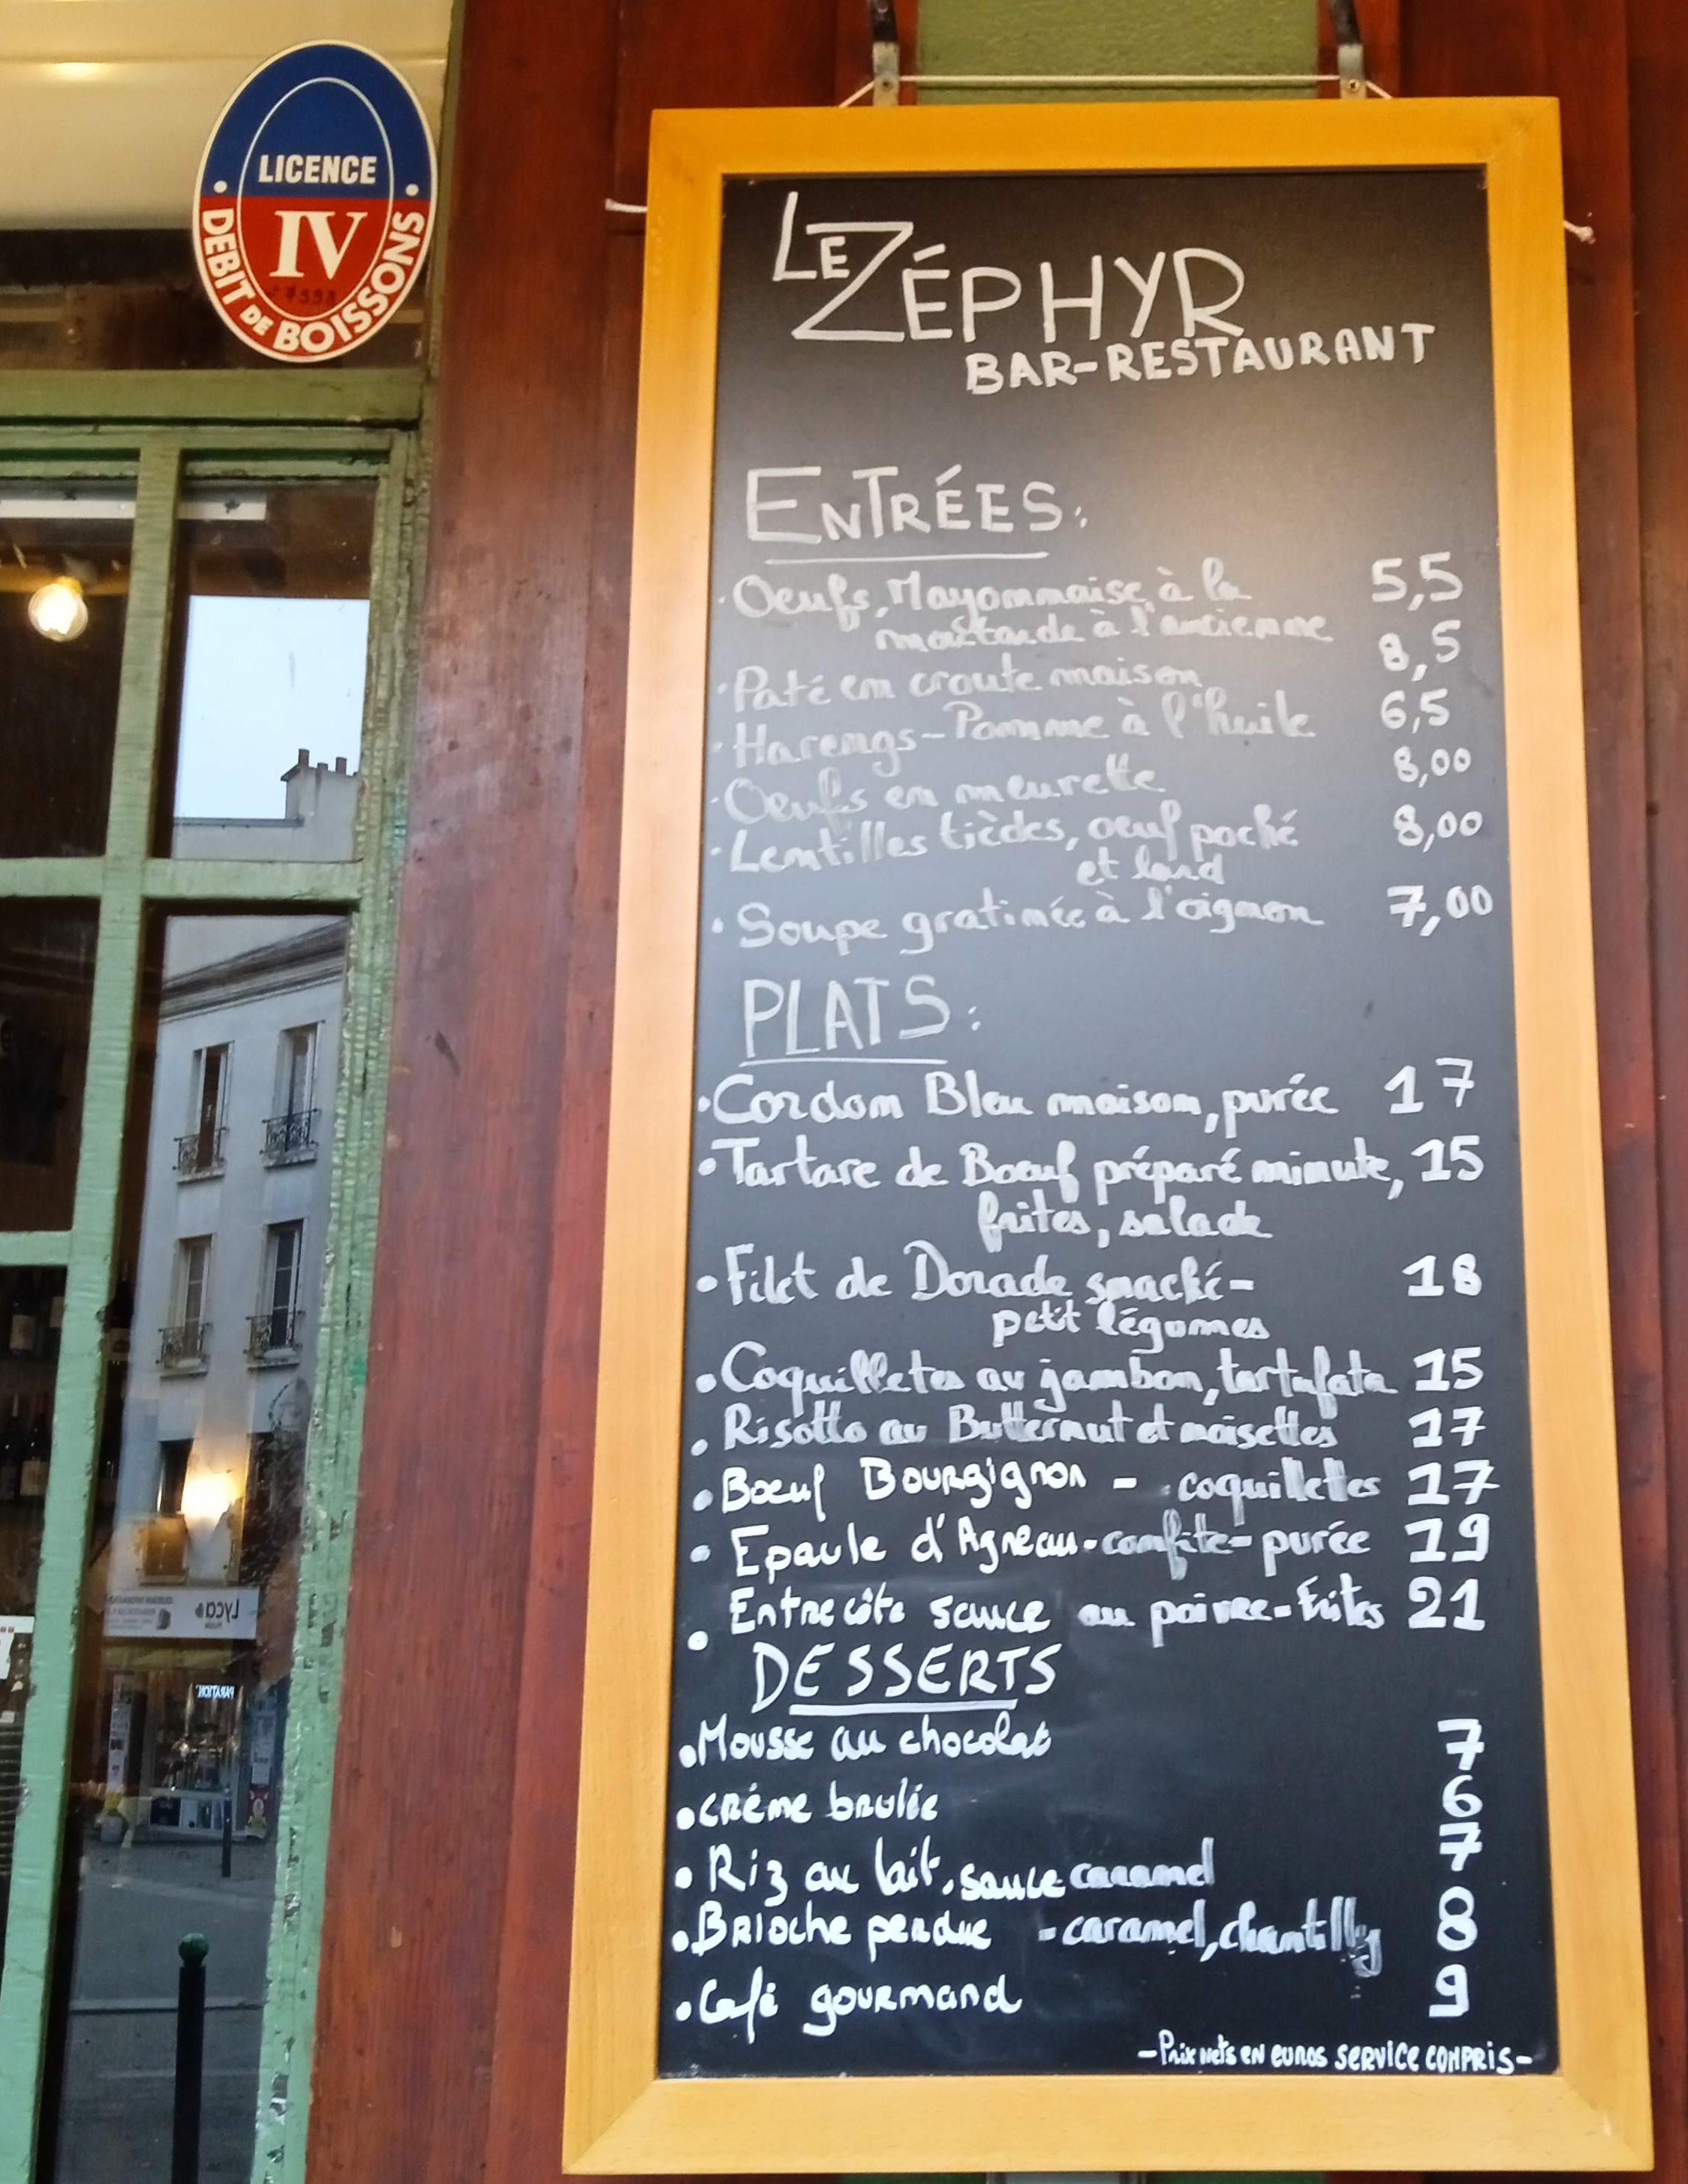 LICENCE
IV
DEBIT DE BOISSONS
LE ZÉPHYR
BAR-RESTAURANT
ENTRÉES:
. Oeufs, Mayommaise à la 5,5
moutarde à l'ancienne
. Paté en croute maison 8,5
. Harengs-Pomme à l'huile 6,5
. Oeufs en meurette 8,00
. Lentilles tièdes, oeuf poché 8,00
et lard
. Soupe gratinée à l'oignon 7,00
PLATS:
. Cordon Bleu maison, purée 17
. Tartare de Boeuf préparé minute, 15
frites, salade
. Filet de Dorade snacké- 18
petit légumes
. Coquillettes au jambon, tartufata 15
. Risotto au Butternut et noisettes 17
. Boeuf Bourgignon - coquillettes 17
. Epaule d'Agneau-confite-purée 19
. Entrecôte sauce au poivre-Frites 21
DESSERTS
. Mousse au chocolat 7
. crème brulée 6
. Riz au lait, sauce caramel 7
. Brioche perdue - caramel, chantilly 8
. Café gourmand 9
-Prix nets en euros service compris-
Lyca